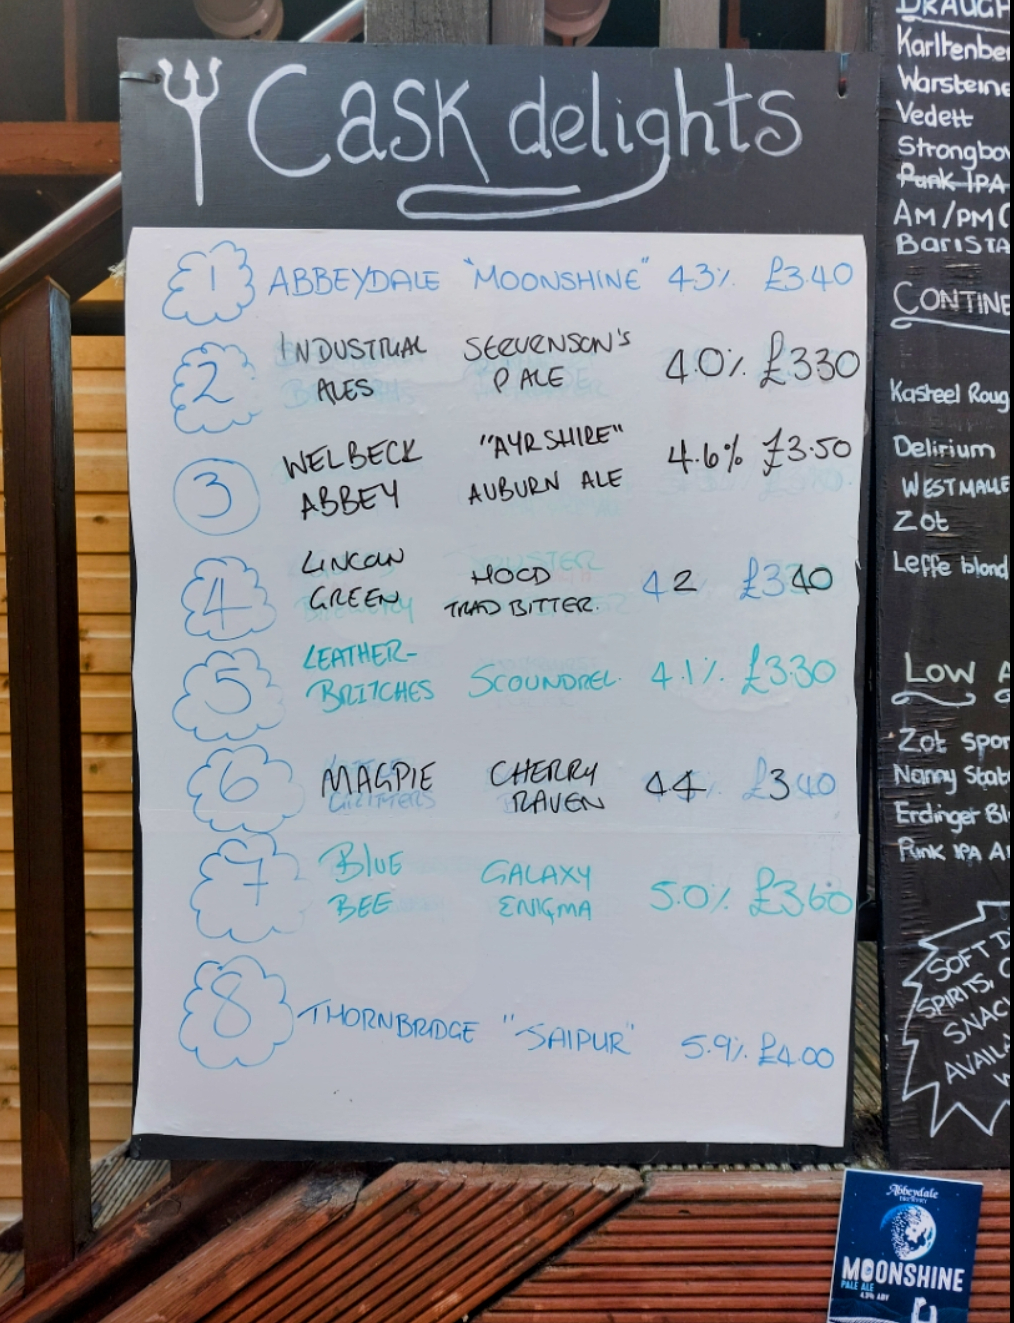 Cask delights
1 ABBEYDALE "MOONSHINE" 4.3% £3.40
2 INDUSTRIAL ALES STEVENSON'S PALE 4.0% £330
3 WELBECK ABBEY "AYRSHIRE" AUBURN ALE 4.6% £3.50
4 LINCOLN GREEN HOOD TRAD BITTER. 42 £340
5 LEATHER-BRITCHES SCOUNDREL. 4.1% £3.30
6 MAGPIE CHERRY RAVEN 44% £340
7 BLUE BEE GALAXY ENIGMA 5.0% £360
8 THORNBRIDGE "JAIPUR" 5.9% £4.00
DRAUGH
Karltenbe
Warsteine
Vedett
Strongbo
Punk IPA
AM/PM
BARISTA
CONTINE
Kasteel Roug
Delirium
WESTMALLE
Zot
Leffe blond
LOW A
Zot Spor
Nanny Stat
Erdinger Bl
Punk IPA A
SOFT D
SPIRITS, C
SNAC
AVAILA
W
Abbeydale
BREWERY
MOONSHINE
PALE ALE
4.3% ABV